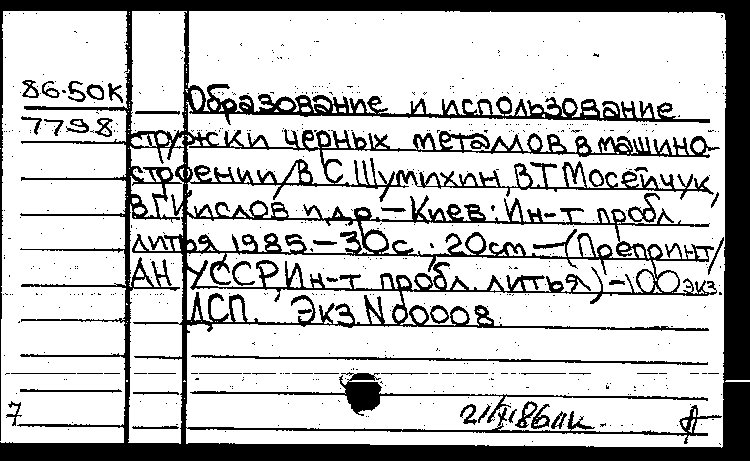 86-50К Образование и использование
7798 стружки черных металлов в машино-
строении/В.С.Шумихин, В.Т.Мосейчук,
В.Г.Кислов и др.-Киев: Ин-т пробл.
литья, 1985.-30с.; 20см.-(Препринт/
АН УССР, Ин-т пробл. литья)-100экз.
ДСП. Экз.N00008.
7